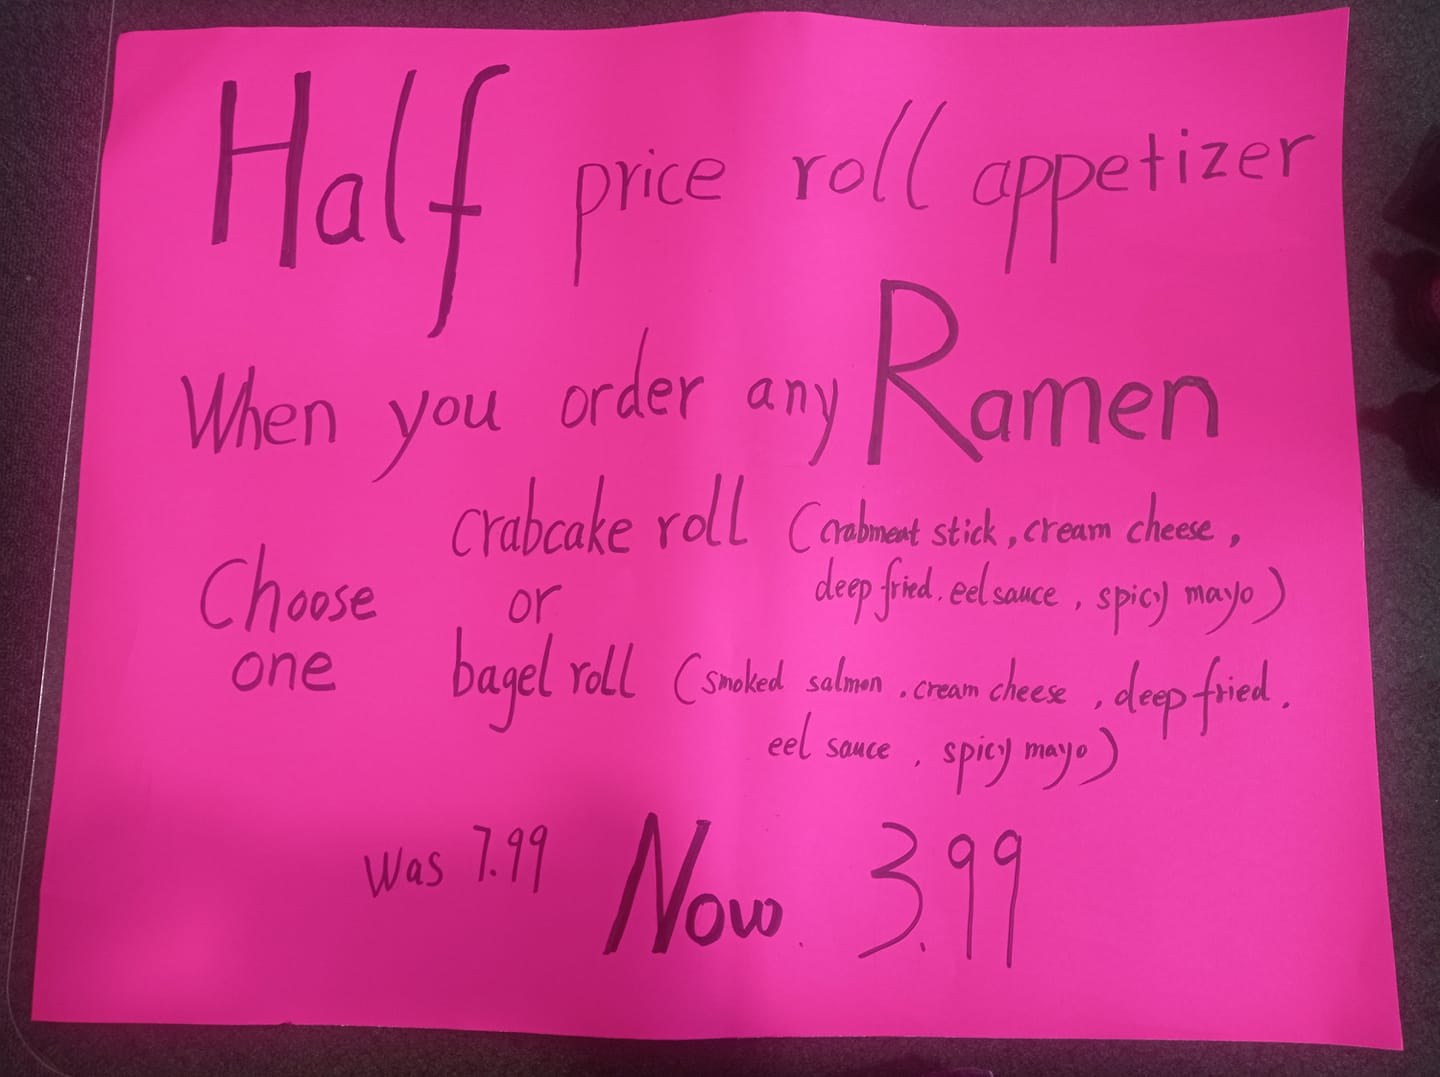 Half price roll appetizer
When you order any Ramen
Choose one
crabcake roll (crabmeat stick, cream cheese,
deep fried. eel sauce, spicy mayo)
or
bagel roll (smoked salmon. cream cheese, deep fried.
eel sauce, spicy mayo)
Was 7.99 Now. 3.99